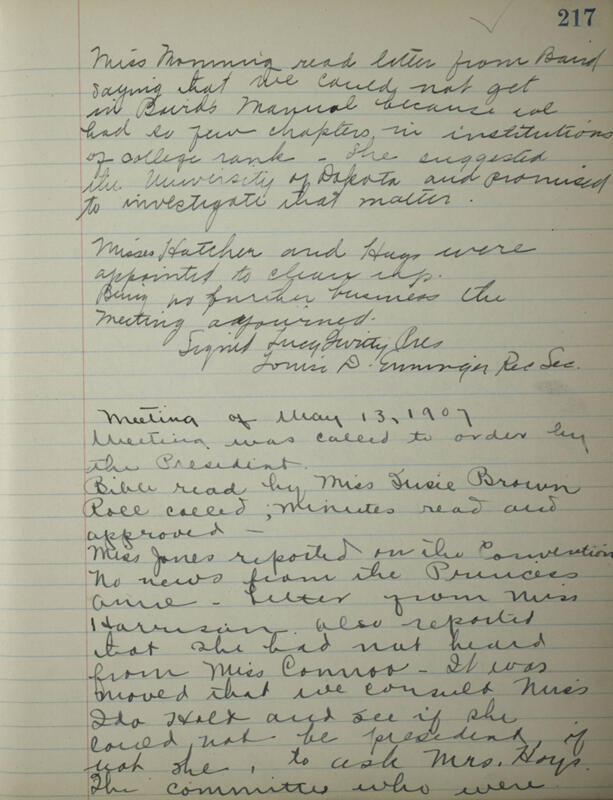 217
Miss Momming read letter from Baird
saying that we could not get
in Baird's Manual because we
had so few chapters in institutions
of college rank - She suggested
the University of Dakota and promised
to investigate that matter.
Misses Hatcher and Hays were
appointed to clean up.
Being no further business the
meeting adjourned.
Signed Lucy Pres
Louise D. Rec Sec.
Meeting of May 13, 1907
Meeting was called to order by
the President.
Bible read by Miss Susie Brown
Roll called; minutes read and
approved -
Miss Jones reported on the Convention
No news from the Princess
Anne - Letter from Miss
Harrison. also reported
that she had not heard
from Miss - It was
moved that we consult Miss
Ida Holt and see if she
could not be president, if
not she, to ask Mrs. Hoys.
The committee who were